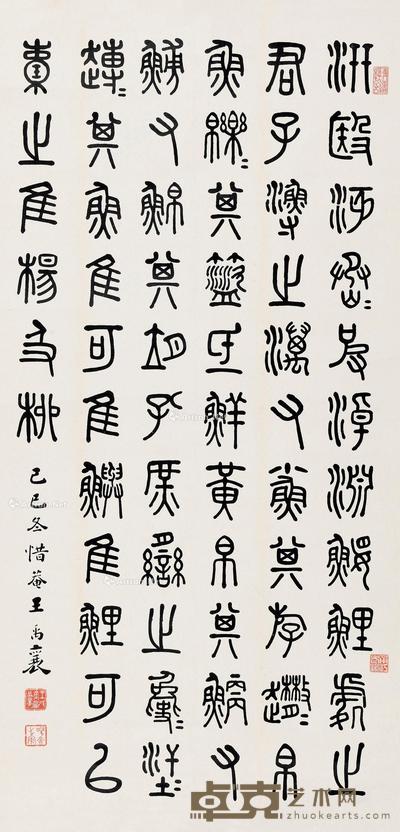 汧殹沔丞=皮淖淵鰋鯉處之
君子漁之澫又小魚其斿趣=帛
魚皪=其盜氐鮮黃帛其鯾又
鯆又鮊其胡孔庶臠之=汗=
趍=其魚隹可隹鱮隹鯉可以
橐之隹楊及柳
己巳冬惜菴王禹襄
卓克艺术网
zhuokearts.com